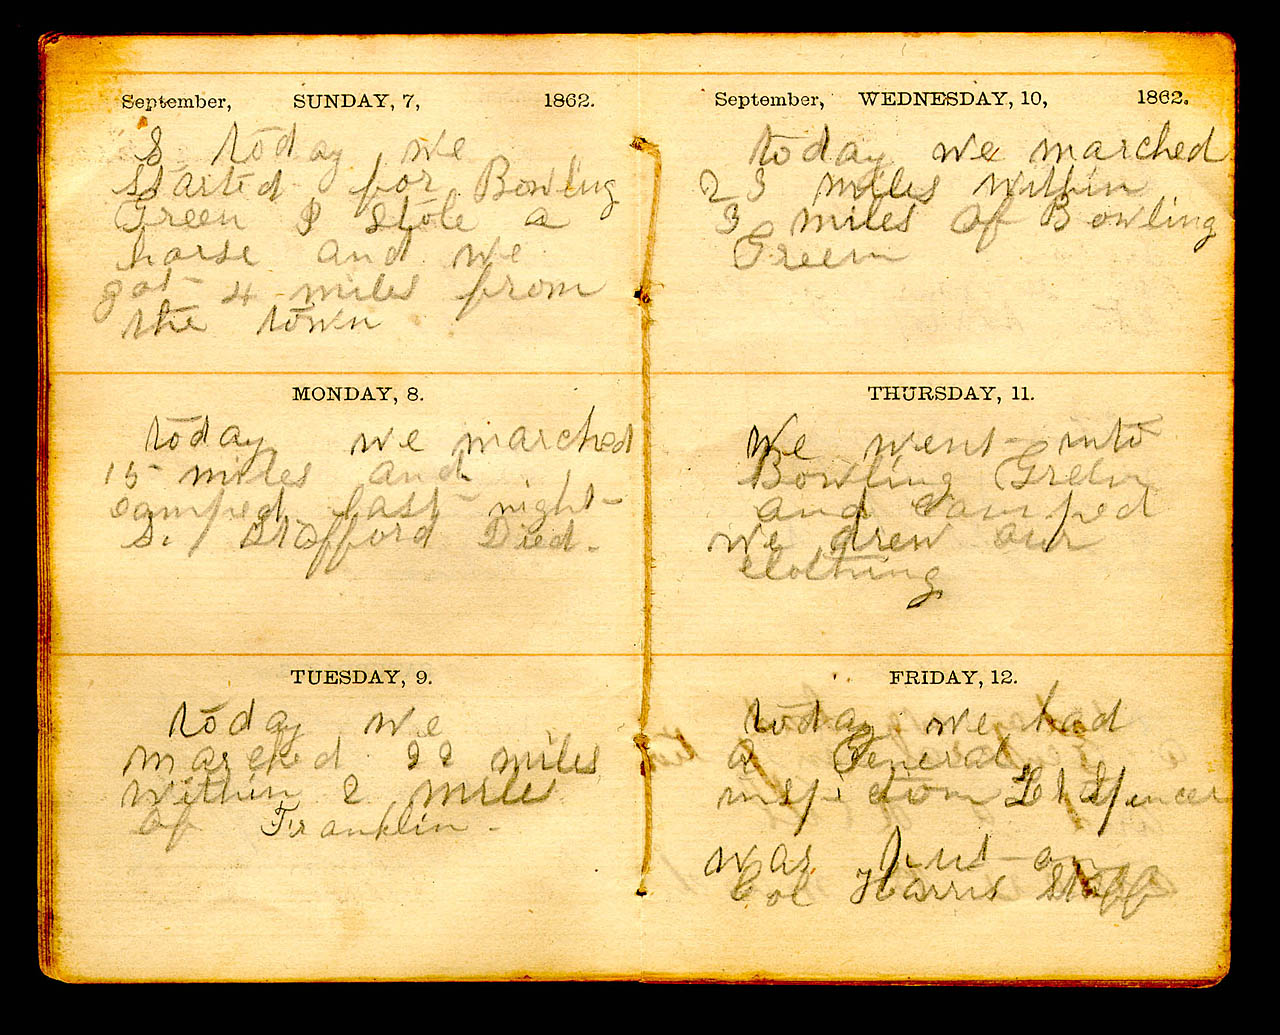 September, SUNDAY, 7, 1862.
I today we
started for Bowling
Green I stole a
horse and we
got 4 miles from
the town
MONDAY, 8.
today we marched
15 miles and
camped last night
S. Stafford Died.
TUESDAY, 9.
today we
marched 22 miles
within 2 miles
of Franklin.
September, WEDNESDAY, 10, 1862.
today we marched
23 miles within
3 miles of Bowling
Green
THURSDAY, 11.
We went into
Bowling Green
and camped
we drew our
clothing
FRIDAY, 12.
today we had
a General
inspection Lt Spencer
was put on
Col Harris Staff